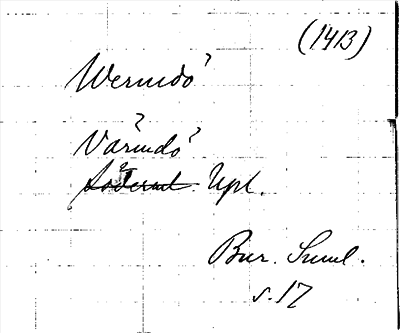 (1413)
Wermdö
Värmdö
Söderml. Upl.
Bur. Suml.
s. 17